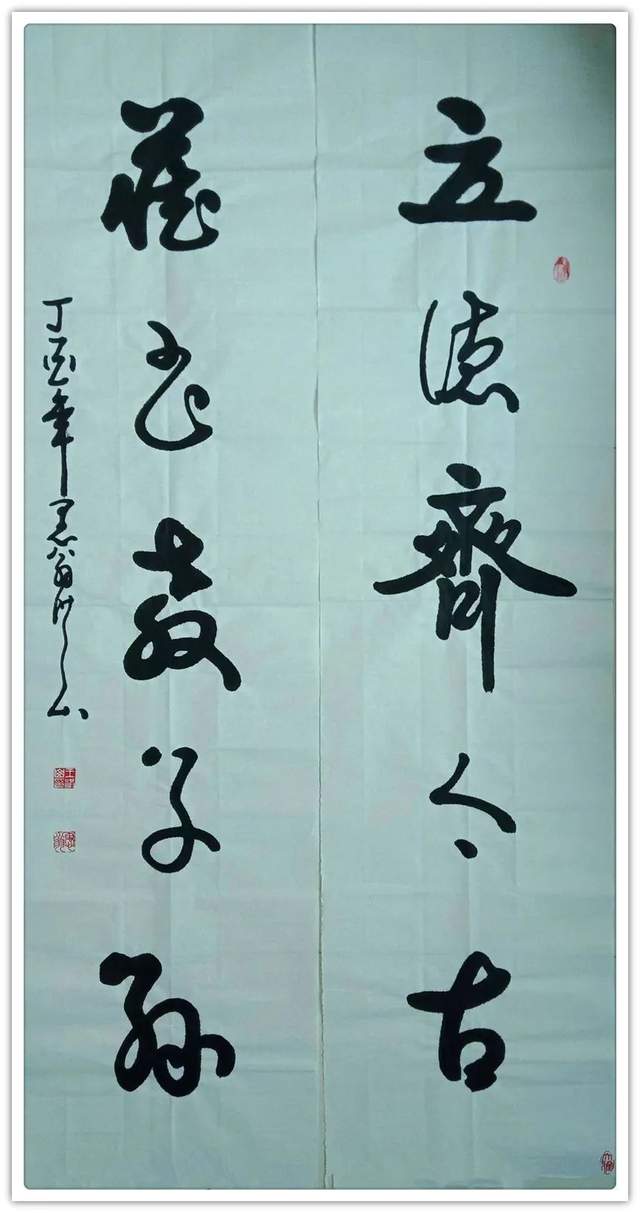 立德齊今古
藏书教子孙
丁酉年墨翁